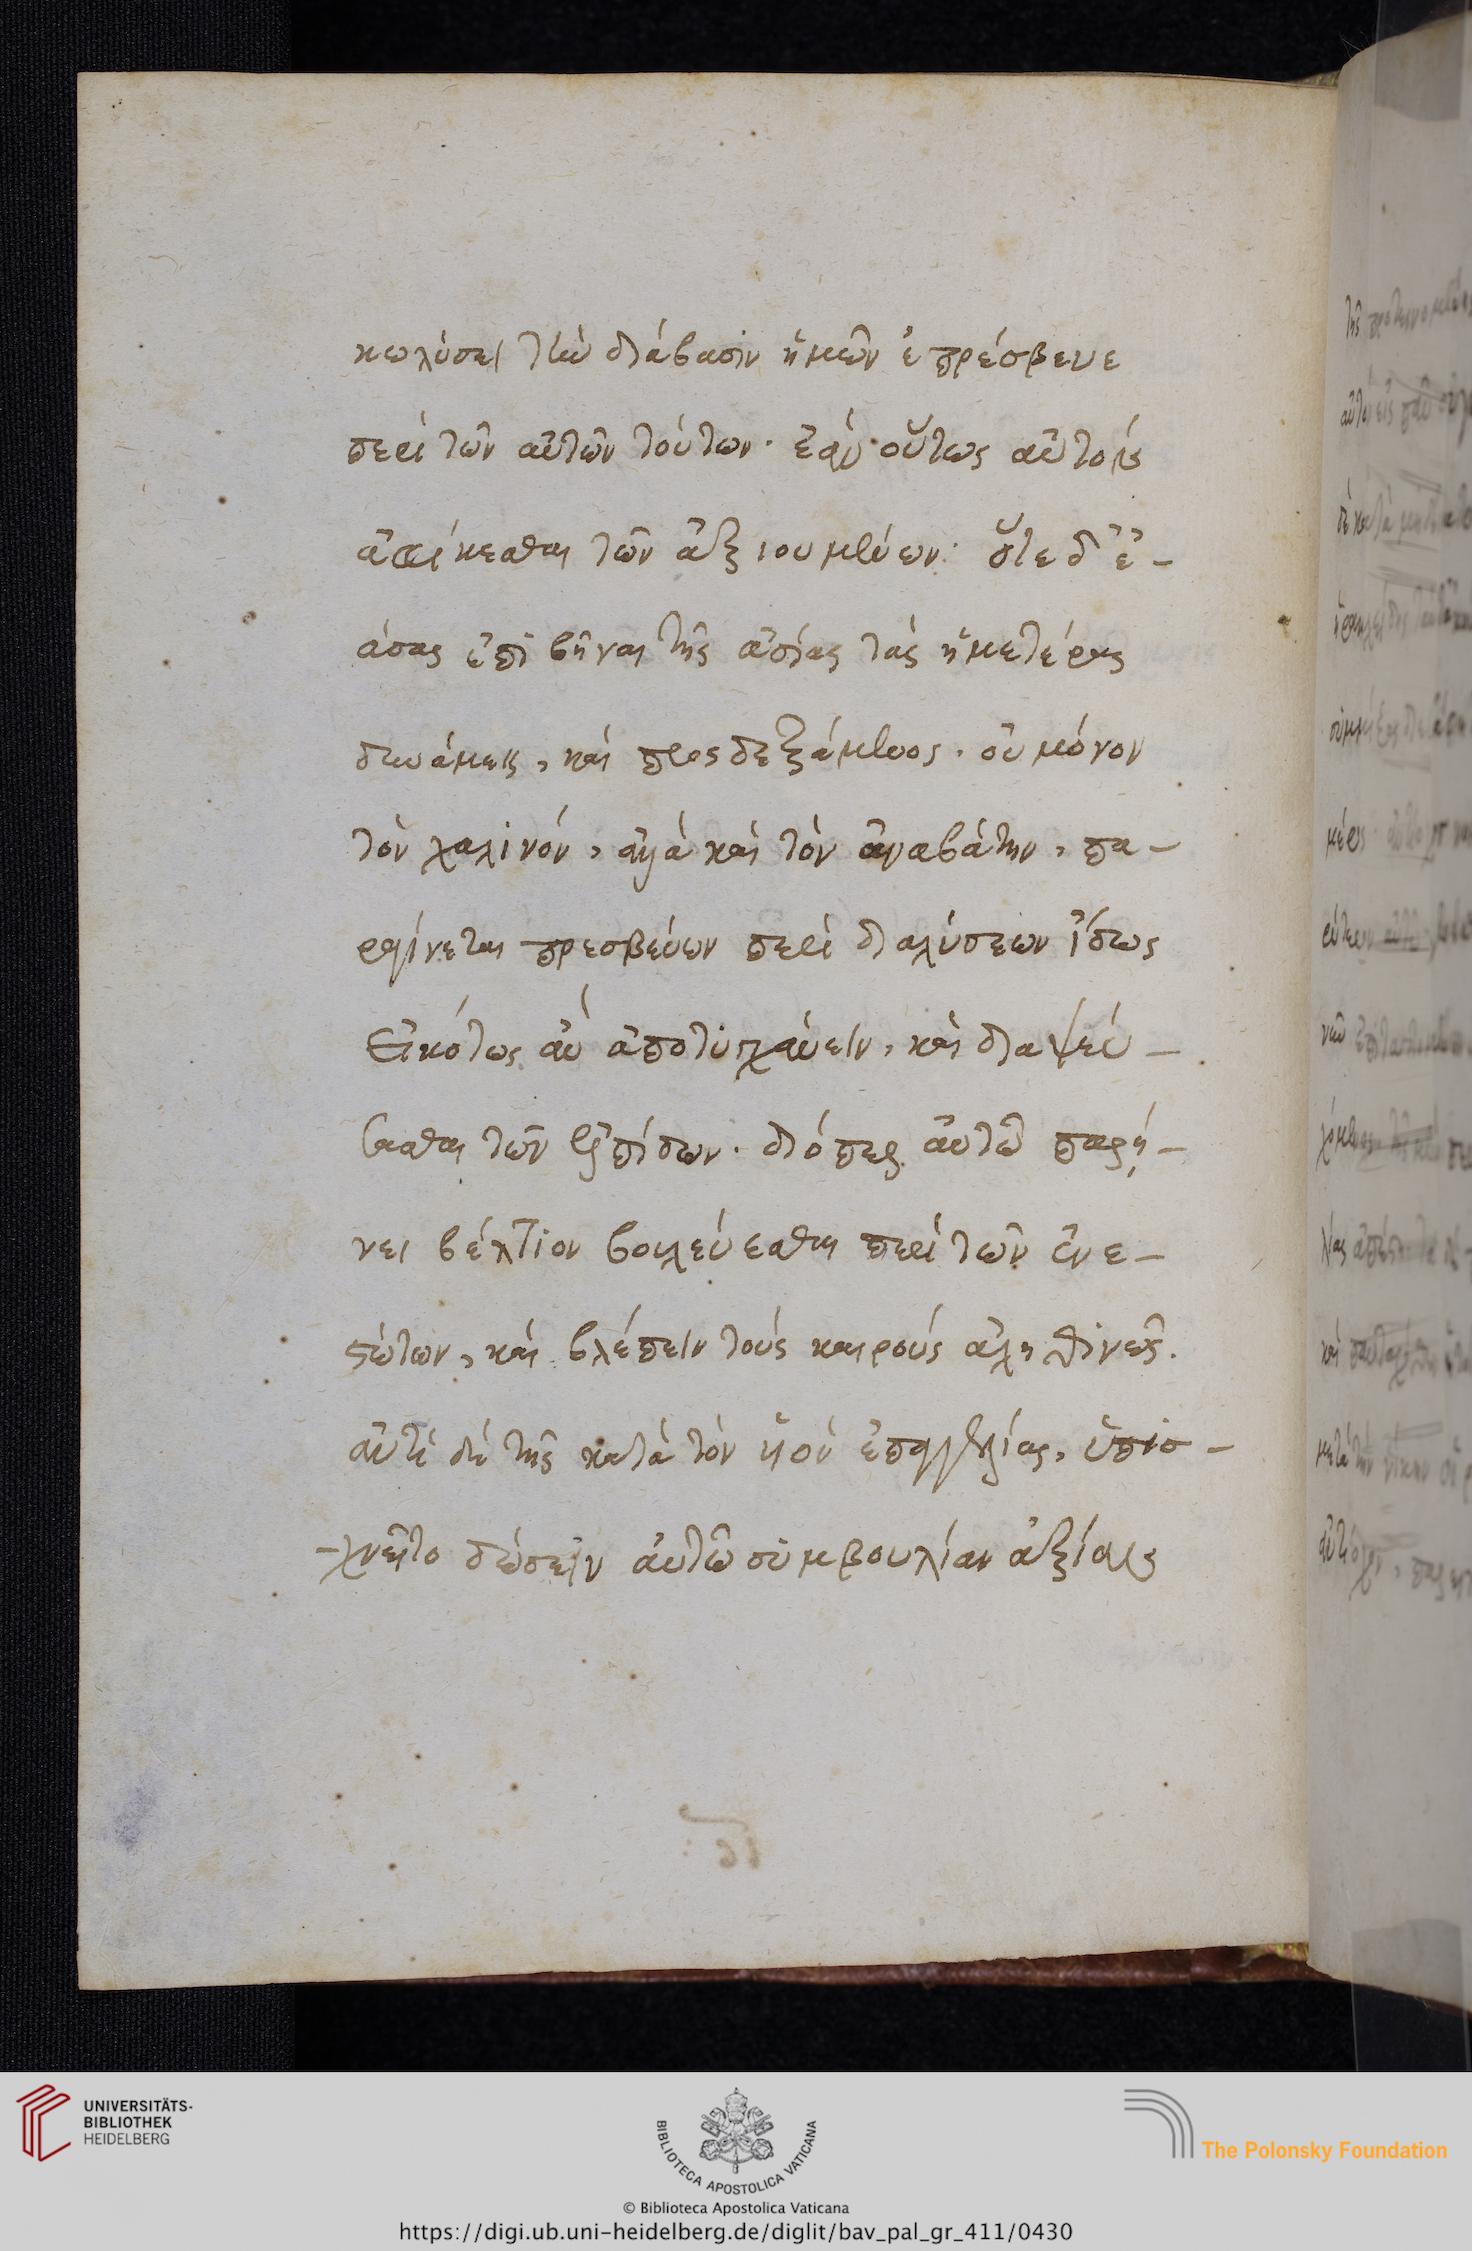 κωλύσει τὴν διάβασιν ἡμῶν ἐπρέσβευε
περὶ τῶν αὐτῶν τούτων· ἐὰν οὕτως αὐτοῖς
ἀφικέσθαι τῶν ἀξιουμένων· ὅτε δ' ἐ-
άσας ἐπιβῆναι τῆς ἀσίας τὰς ἡμετέρας
δυνάμεις, καὶ προσδεξάμενος· οὐ μόνον
τὸν χαλινόν, ἀλλὰ καὶ τὸν ἀναβάτην, πα-
ραγίνεται πρεσβεύων περὶ διαλύσεων ἴσως
εἰκότως ἂν ἀποτυγχάνειν, καὶ διαψεύ-
σασθαι τῶν ἐλπίδων· διόπερ αὐτῷ παρῄ-
νει βέλτιον βουλεύεσθαι περὶ τῶν ἐνε-
στώτων, καὶ βλέπειν τοὺς καιροὺς ἀληθινῶς.
ἀντὶ δὲ τῆς κατὰ τὸν υἱὸν ἐπαγγελίας, ὑπισ-
-χνεῖτο δώσειν αὐτῷ συμβουλίαν ἀξίαν
UNIVERSITÄTS-
BIBLIOTHEK
HEIDELBERG
BIBLIOTECA APOSTOLICA VATICANA
The Polonsky Foundation
© Biblioteca Apostolica Vaticana
https://digi.ub.uni-heidelberg.de/diglit/bav_pal_gr_411/0430